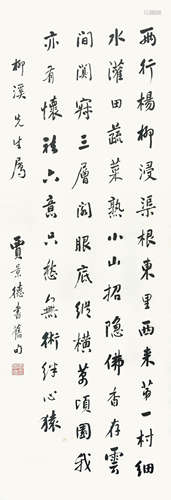 兩行楊柳浸渠根東里西來第一村細
水灌田蔬菜熟小山招隱佛香存雲
間闃寂三層閣眼底縱橫萬頃園我
亦有懷祛六意只愁無術絆心猿
柳溪先生屬
賈景德書舊句